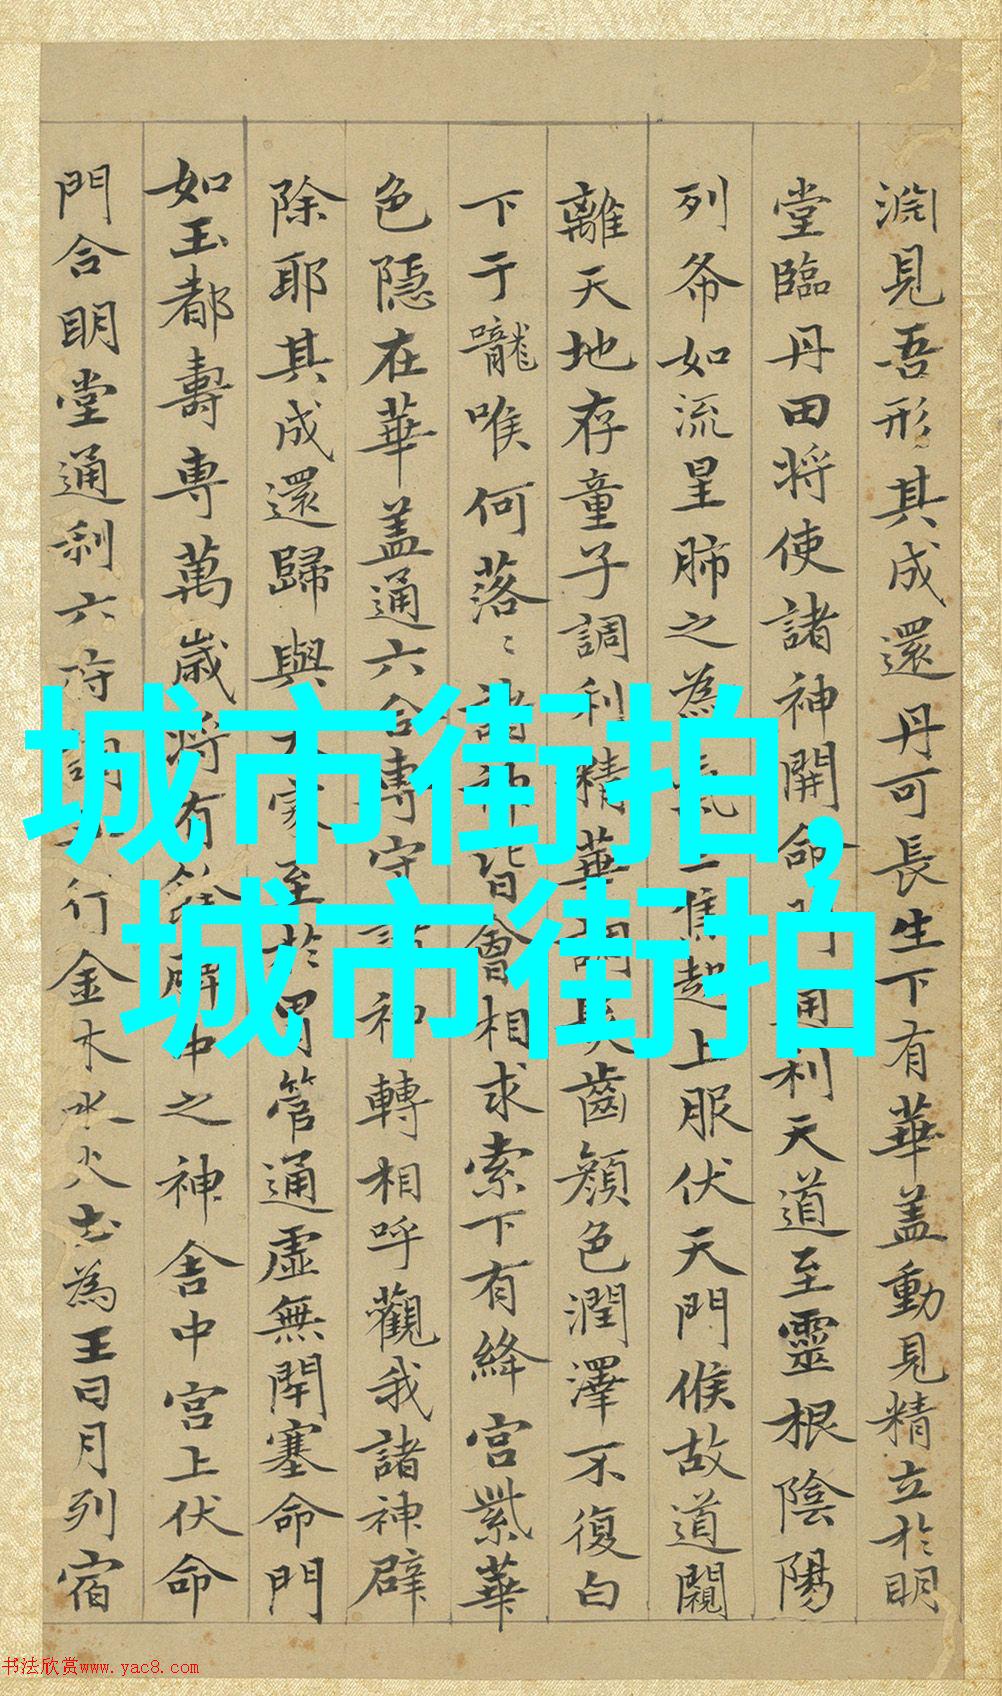 淵見吾形其成還丹可長生下有華盖動見精立於明
堂臨丹田将使諸神開命門通利天道至靈根陰陽
列布如流星肺之為氣三焦起上服伏天門候故道闚
離天地存童子調利精華調髮齒顏色潤澤不復白
下于嚨喉何落〻諸神皆會相求索下有絳宮紫華
色隱在華盖通六合專守諸神轉相呼觀我諸神辟
除耶其成還歸與家至於胃管通虛無閉塞命門
如玉都壽専萬歲将有餘脾中之神舍中宮上伏命
門合明堂通利六府調行金木水火土為王日月列宿
城市街拍,
城市街拍
书法欣赏www.yac8.com